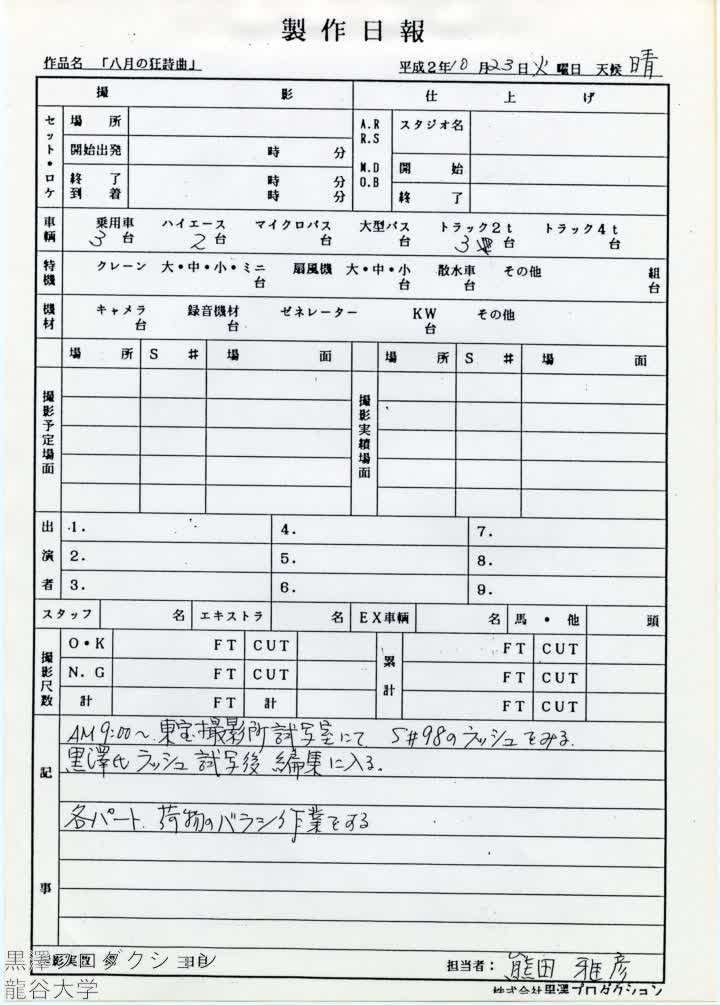 製作日報
作品名 「八月の狂詩曲」 平成2年10月23日火曜日 天候 晴
撮影 仕上げ
セット・ロケ 場所 A.R R.S M.D O.B スタジオ名
開始出発 時 分 開始
終了 時 分 終了
到着 時 分
車輌 乗用車 ハイエース マイクロバス 大型バス トラック2t トラック4t
3台 2台 台 台 3台 台
特機 クレーン 大・中・小・ミニ 扇風機 大・中・小 散水車 その他 組
台 台 台 台
機材 キャメラ 録音機材 ゼネレーター KW その他
台 台 台
場所 S# 場面 場所 S# 場面
撮影予定場面 撮影実績場面
出演者 1. 4. 7.
2. 5. 8.
3. 6. 9.
スタッフ 名 エキストラ 名 EX車輌 名 馬・他 頭
撮影尺数 O・K FT CUT 累計 FT CUT
N.G FT CUT FT CUT
計 FT 計 FT CUT
記事
AM9:00〜東宝撮影所試写室にて S#98のラッシュをみる.
黒澤氏ラッシュ試写後 編集に入る.
各パート、荷物のバラシ作業をする
担当者: 熊田雅彦
株式会社黒澤プロダクション
黒澤プロダクション
龍谷大学